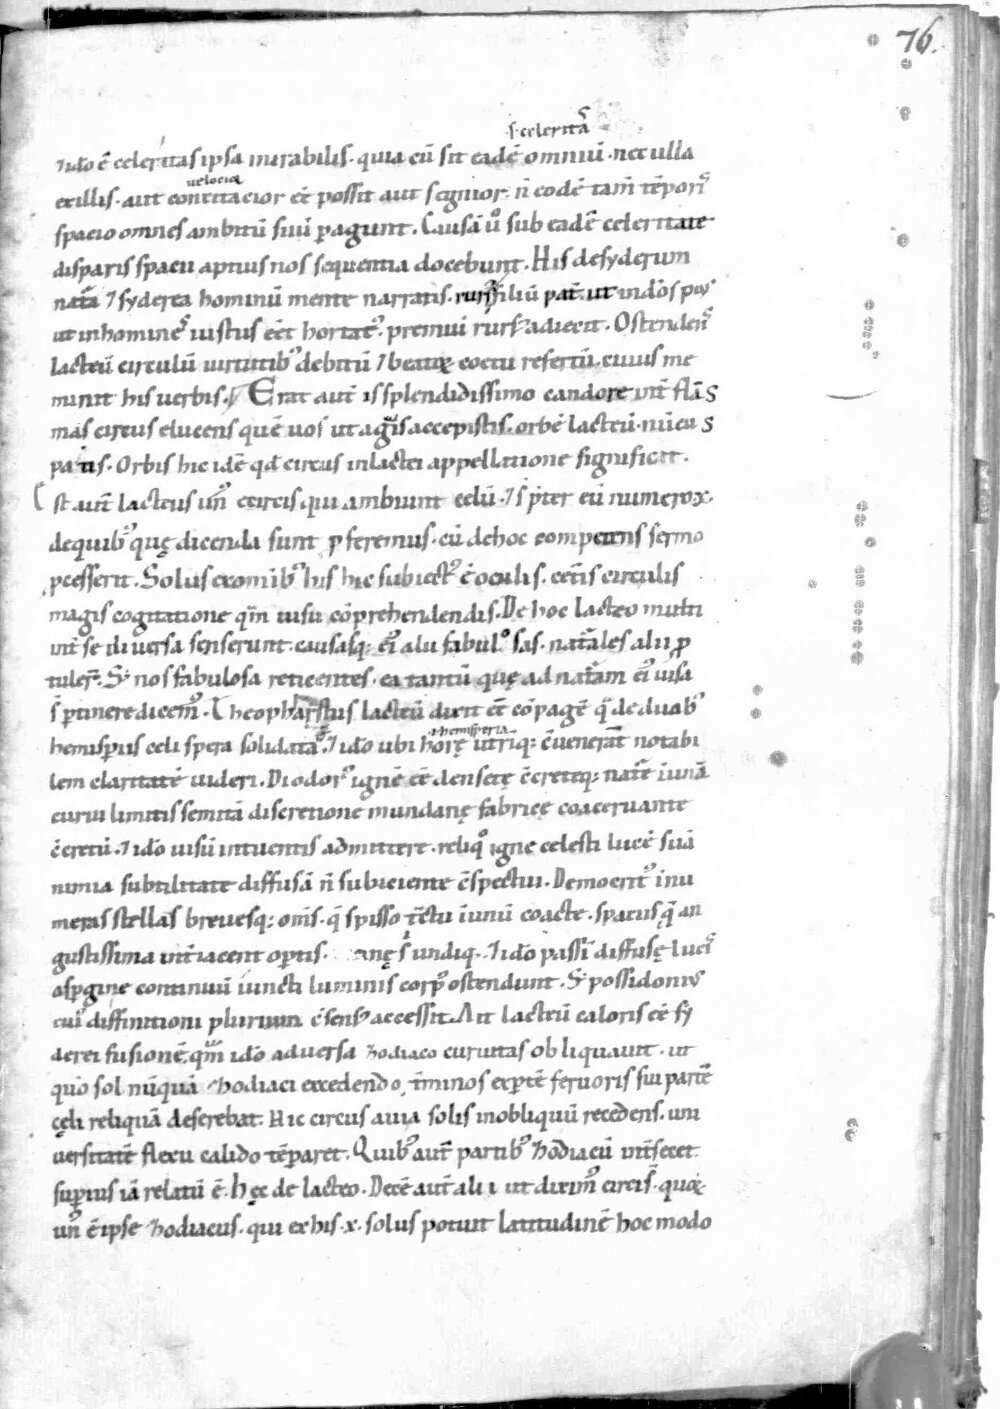 76.
.s. celeritaˢ
⁊ ido ē celeritas ipsa mirabilis. quia cū sit eadē omniū. nec ulla
uelocior
ex illis. aut concitacior eē possit aut segnior. ñ eodē tam̄ tēporˢ
spacio omnes ambitū suū ꝑagunt. Causā ũ sub eadē celeritate
disparis spacii aptius nos sequentia docebunt. His desyderum
natā ⁊ syderea hominū mente narratis. rursꝰ filiū pat̄. ut in dōs piꝰ
ut in homineˢ iustus eēt hortatꝰ. premiū rursꝰ adiecit. Ostendenˢ
lacteū circulū uirtutibꝰ debitū ⁊ beatoꝝ coetu refertū. cuius me
minit his uerbis. Erat aut̄ is splendidissimo candore int̄ flās
mas circus elucens quē uos ut agͬis accepistis. orbē lacteū. nūcu s
patis. Orbis hic idē qd̄ circus in lactei appellatione significat.
st aut̄ lacteus unꝰ e circis qui ambiunt celū. ⁊ sp̄ter eū numero .x.
de quibꝰ quę dicenda sunt ꝓferemus. cū de hoc competens sermo
ꝓcesserit. Solus ex om̄ibꝰ his hic subiectꝰ ē oculis. cet̄is circulis
magis cogitatione qm̄ uisu cōprehendendis. De hoc lacteo multi
int̄ se diuersa senserunt. causasq; eiꝰ alii fabulosas. nat̄ales alii ꝓ
tuler̄. Sꝫ nos fabulosa reticentes. ea tantū quę ad nat̄am eiꝰ uisa
s̄ ꝑtinere dicemꝰ. Theophrastus lacteū dixit eē cōpagē q̄ de duabꝰ
hemisperia
hemisperiis celi spera solidata ē. ⁊ ido ubi horę utrīq; cuenerat̄ notabi
lem claritatē uideri. Diodorꝰ ignē eē densetę cc̄reteq; nat̄e ī unā
curui limitis semitā discretione mundanę fabricę coaceruante
cc̄retū. ⁊ ido uisū intuentis admittere. reliqꝰ igne celesti lucē suā
nimia subtilitate diffusā ñ subiciente cs̄pectui. Democritꝰ inu
meras stellas breuesq; om̄s. q̄ spisso t̄ctu ī unū coacte. spacus q̄ an
gustissima int̄iacent optis. anę s̄ undiq. ⁊ ido passī diffusę luciˢ
aspgine continuū iuncti luminis corpꝰ ostendunt. Sꝫ possidoniꝰ
cuiꝰ diffinitioni plurium cs̄ensꝰ accessit. Ait lacteū caloris eē sy
derei fusionē. qm̄ ido aduersa zodiaco curuitas obliquauit. ut
quō sol nūquā zodiaci excedendo t̄minos expertē feruoris sui partē
cęli reliquā deserebat. Hic circus a uia solis in obliquū recedens. uni
uersitatē flexu calido tēperaret. Quibꝰ aut̄ partibꝰ zodiacū int̄secet.
supius iā relatū ē. Hęc de lacteo. Decē aut̄ alii ut diximꝰ circis. quoꝝ
unꝰ ē ipse zodiacus. qui ex his .x. solus potuit latitudinē hoc modo